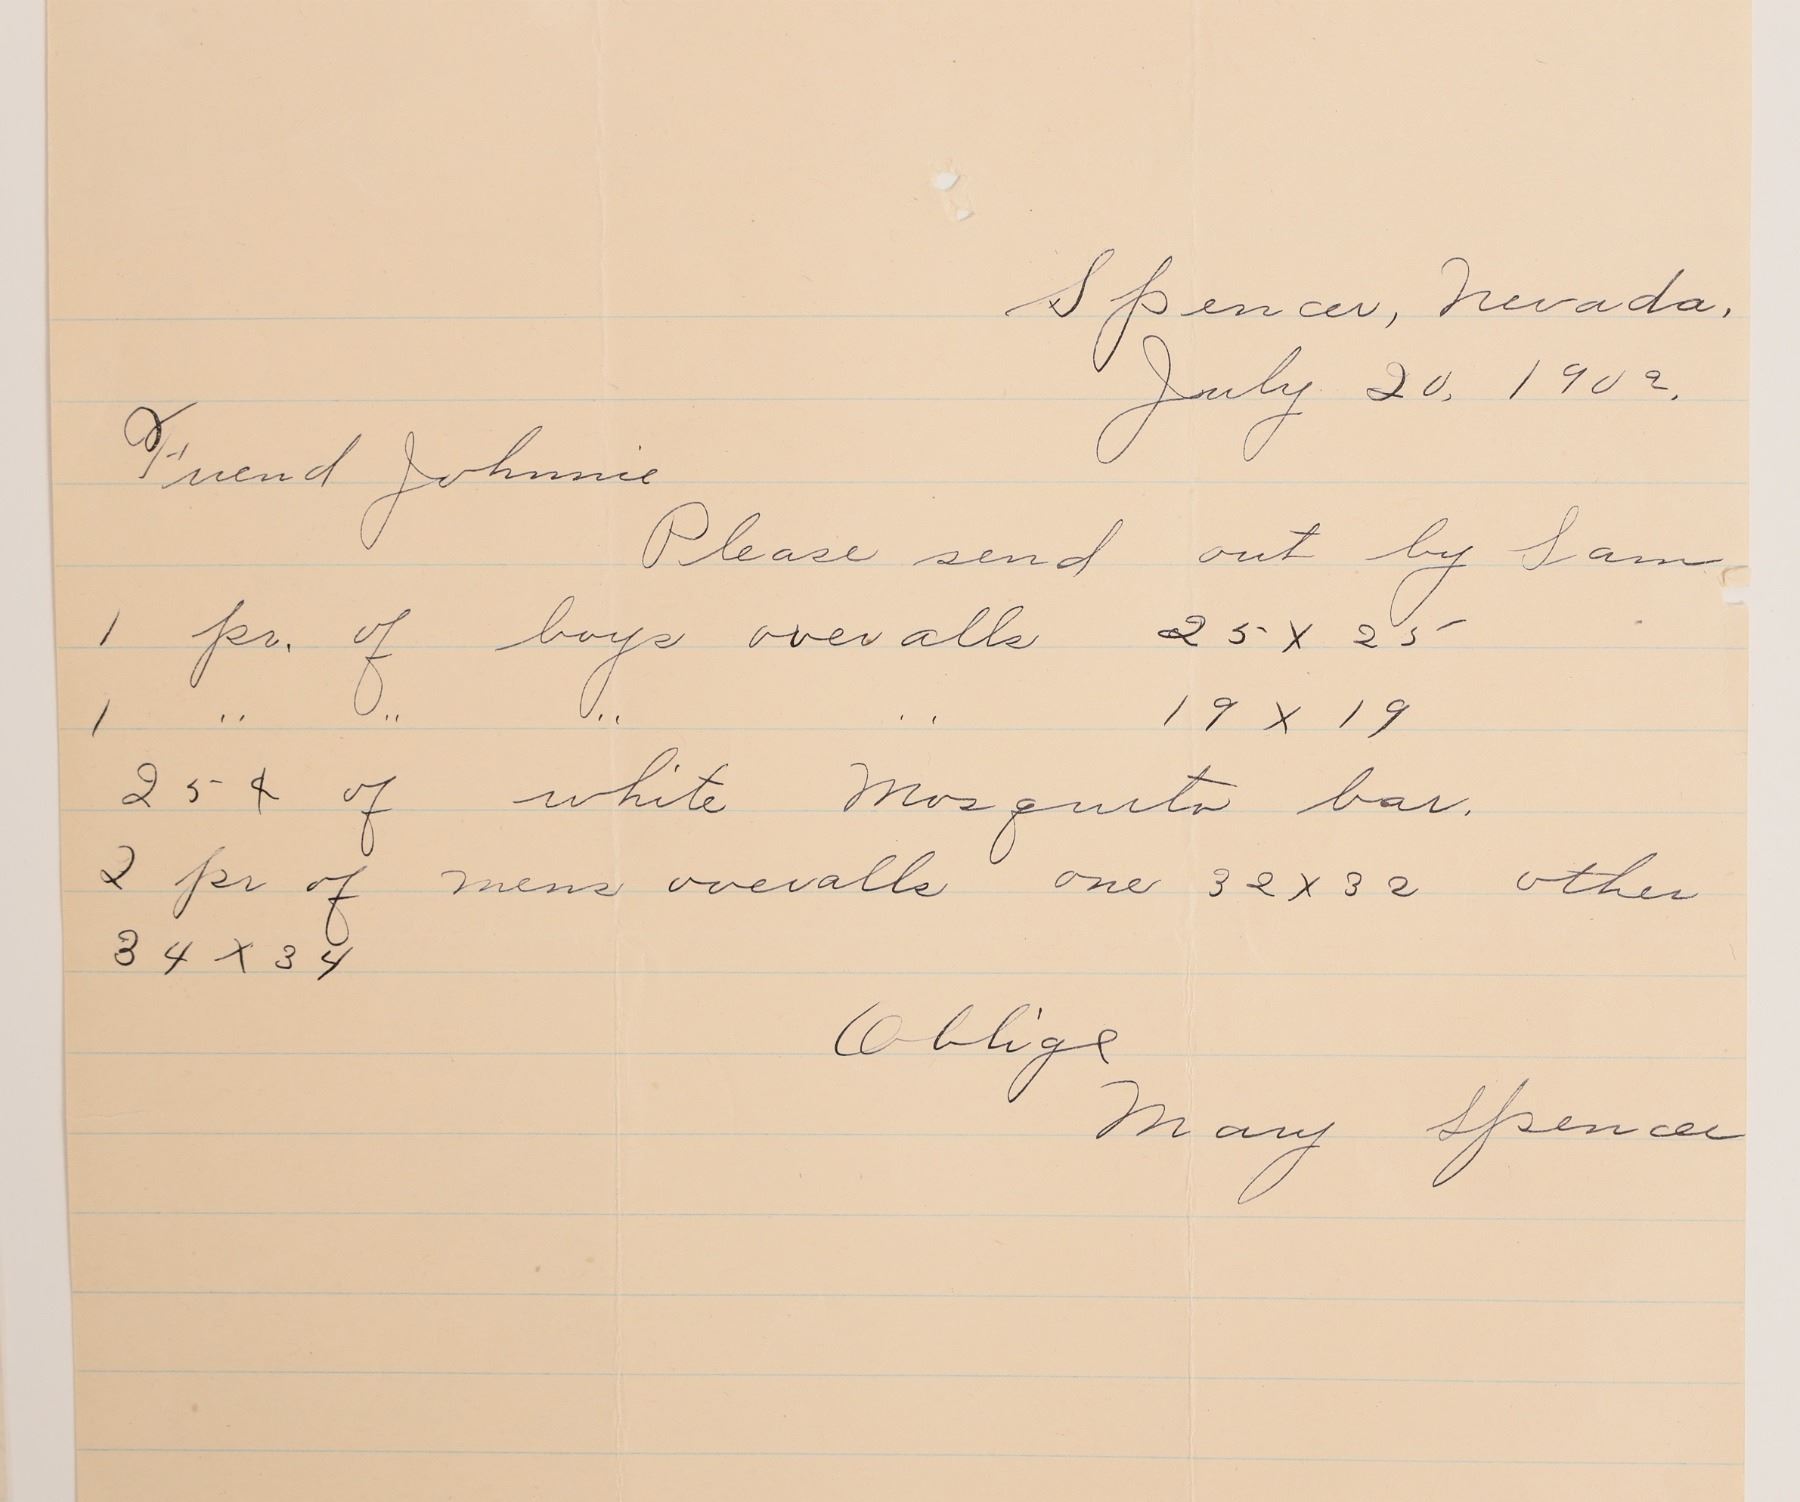 Spencer, Nevada.
July 20. 1902.
Friend Johnnie
Please send out by Sam
1 pr. of boys overalls 25 X 25
1 " " " " 19 X 19
25¢ of white Mosquito bar.
2 pr of mens overalls one 32 X 32 other
34 X 34
Oblige
Mary Spencer